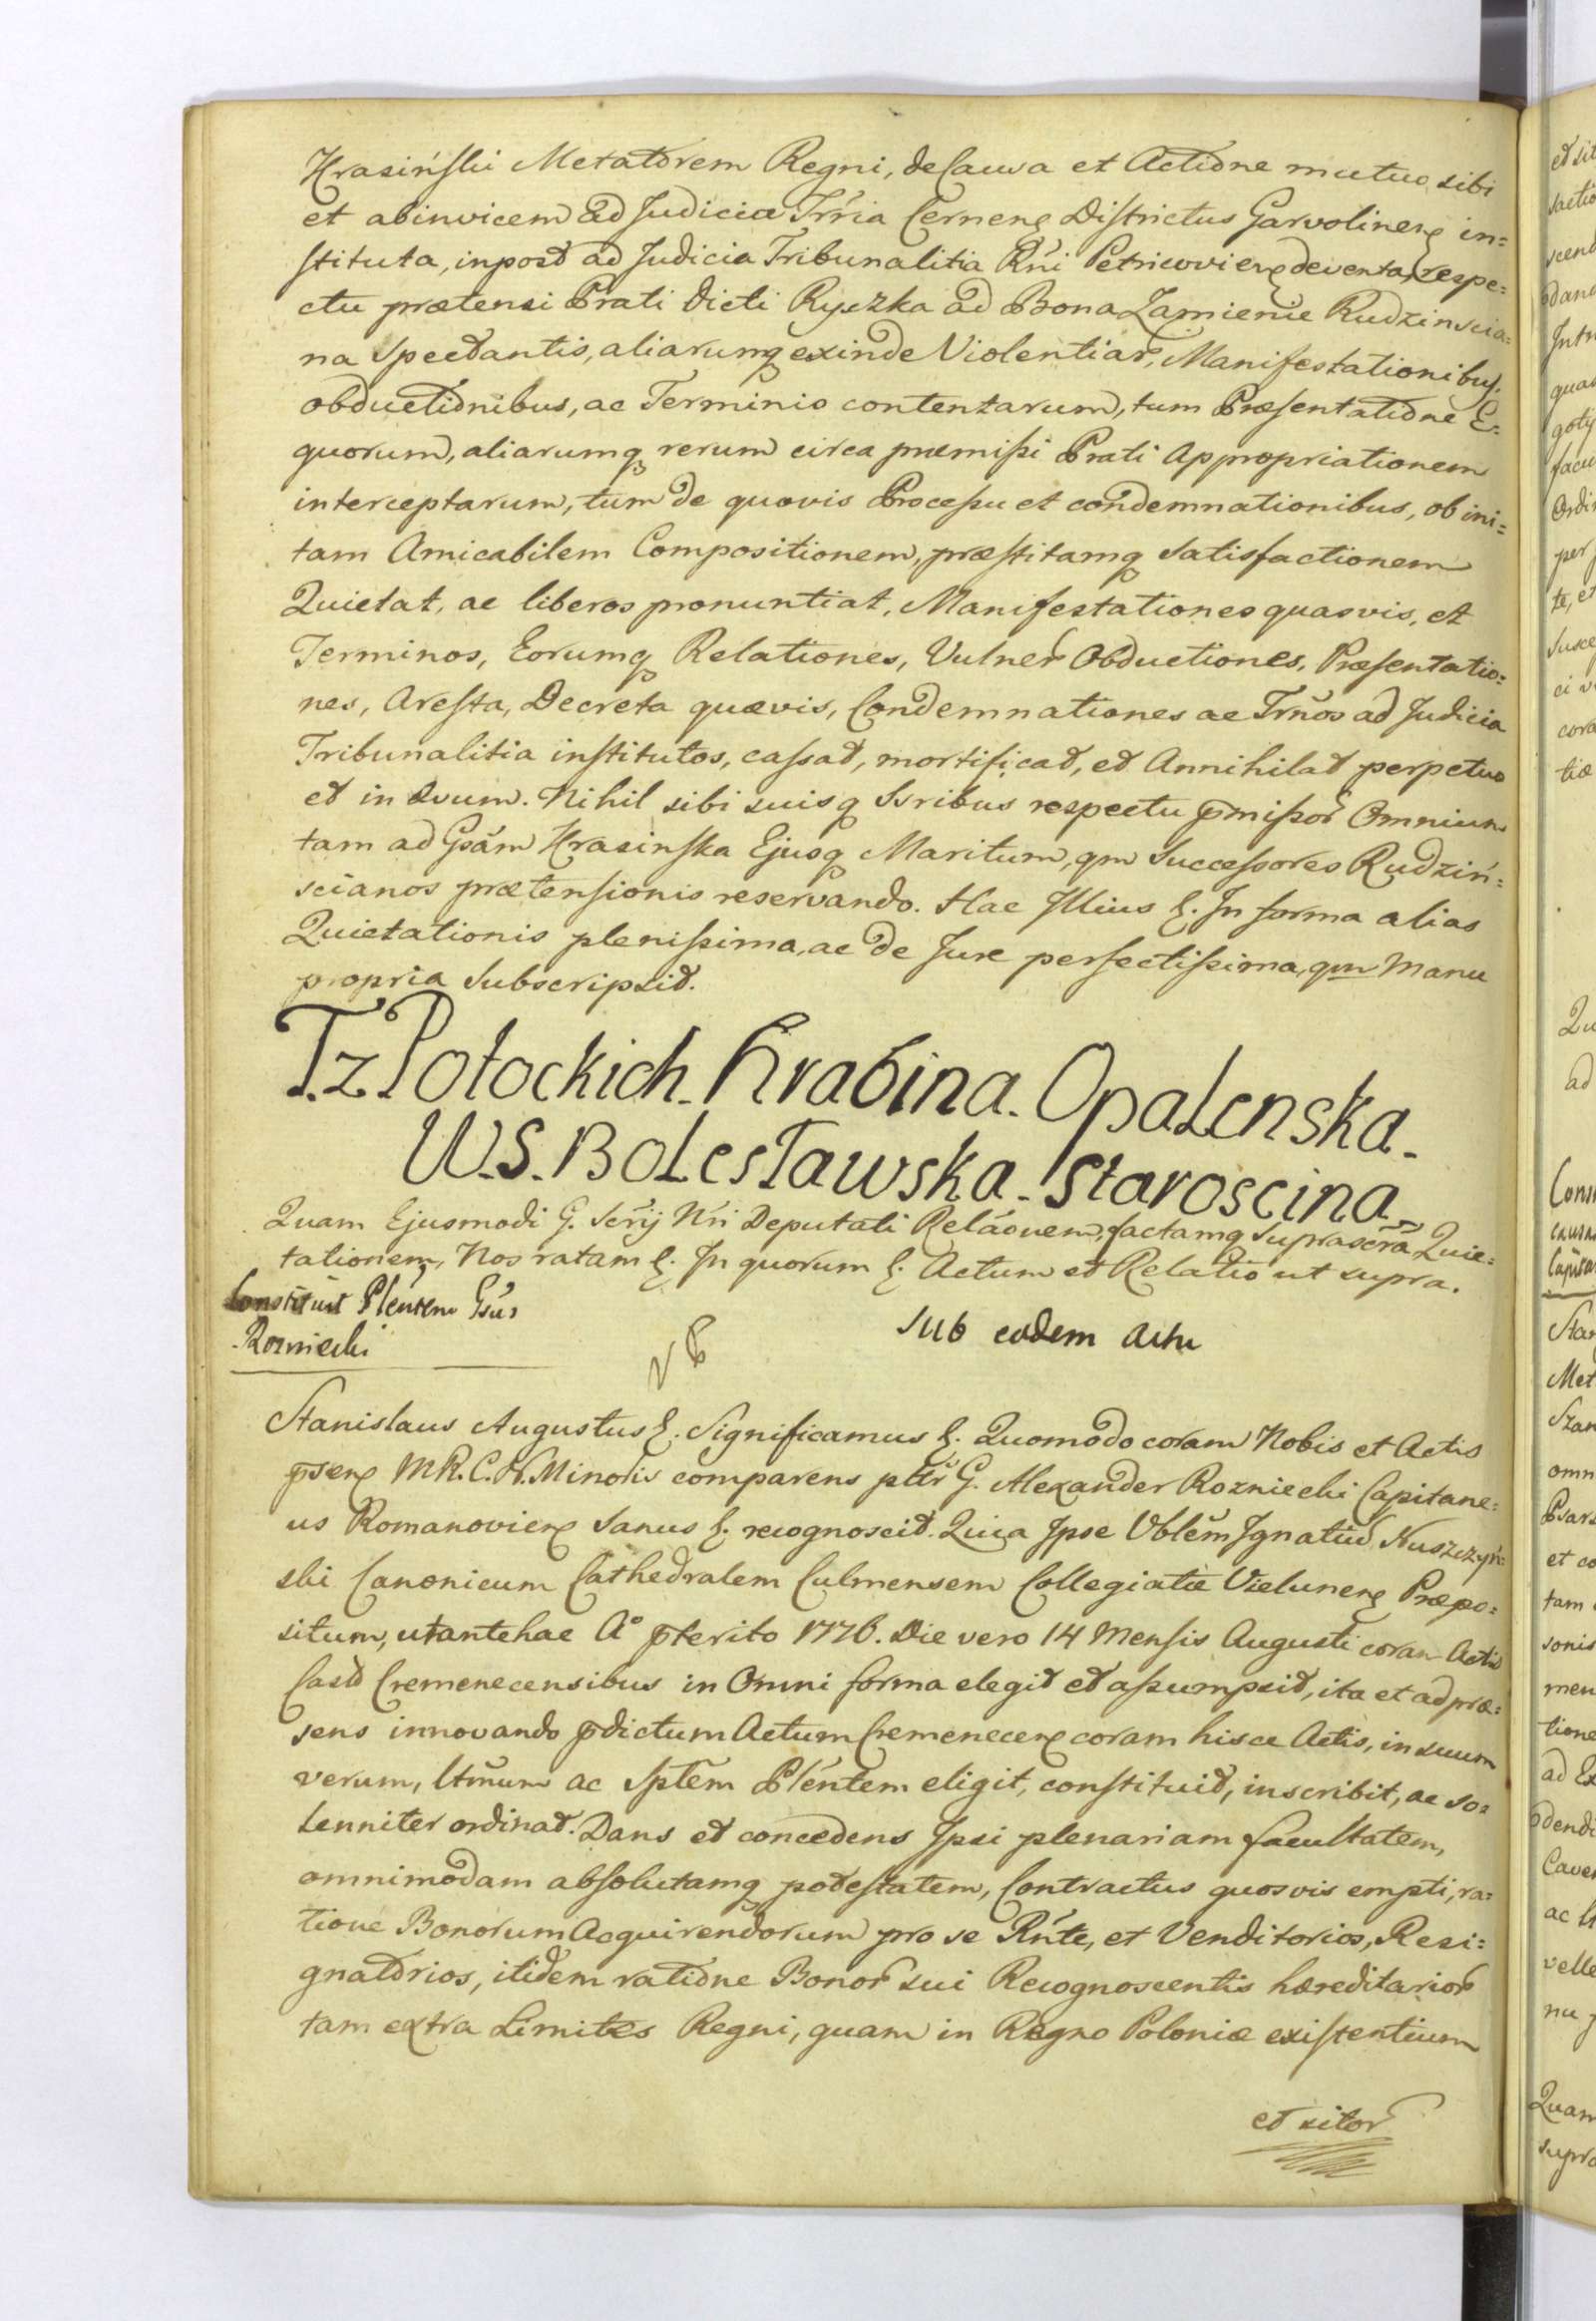 Krasińſki Metatorem Regni, de Causa et Actione mutuo sibi
et abinvicem ad Judicia Trria Cernenę Diſtrictus Garvolinenę in=
ſtituta, inpost ad Judicia Tribunalitia Rńi Petricovienę deventa, respe=
ctu prætensi Prati dicti Ryczka ad Bona Zamienie Rudzinscia=
na Spectantis, aliarumq exinde Violentiar, Manifestationibus,
obductionibus, ac Terminio contentarum, tum Præſentatione E=
quorum, aliarumq rerum circa præmiſsi Prati Appropriationem
interceptarum, tum de quovis Proceſsu et condemnationibus, ob ini=
tam Amicabilem Compositionem, præſtitamq Satisfactionem
Quietat, ac liberos pronuntiat, Manifestationes quasvis, et
Terminos, Eorumq Relationes, Vulner Obductiones, Præſentatio=
nes, Areſta, Decreta quævis, Condemnationes ac Trńos ad Judicia
Tribunalitia inſtitutos, caſsat, mortificat, et Annihilat perpetuo
et in ævum. Nihil sibi suisq Ssribus respectu p̄miſsor Omnium
tam ad Gsam Krasinſka Ejusq Maritum, qm Succeſsores Rudziń=
scianos prætenſionis reservando. Hac Illius &. In forma alias
Quietationis pleniſsima, ac de Jure perfectiſsima, qm Manu
propria Subscripsit.
T. z Potockich. Hrabina. Opalenska.
W.S. Bolesławska. Staroscina.
Quam Ejusmodi G. Scrij Nri Deputati Relaonem, factamq Suprascra Quie=
tationem, Nos ratam &. In quorum &. Actum et Relatio ut supra.
Constituit Plentem Gsus
Rozniecki
NB
Sub eodem Actu
Stanislaus Augustus &. Significamus &. Quomodo coram Nobis et Actis
p̄senę MR. C. R. Minoris comparens pttr G. Alexander Rozniecki Capitane=
us Romanovienę Sanus &. recognoscit. Quia Ipse Vblem Ignatium Kuszczyń=
ski Canonicum Cathedralem Culmensem Collegiatæ Vielunenę Præpo=
situm, ut antehac Aº p̄terito 1776. Die vero 14 Menſis Auguſti coram Actis
Castr Cremenecensibus in Omni forma elegit et aſsumpsit, ita et ad præ=
sens innovando p̄dictum Actum Cremenecenę coram hisce Actis, in suum
verum, ltmum ac Sptem Plentem eligit, conſtituit, inscribit, ac so=
lenniter ordinat. Dans et concedens Ipsi plenariam facultatem,
omnimodam abſolutamq poteſtatem, Contractus quosvis empti, ra=
tione Bonorum Acquirendorum pro se Rńte, et Venditorios, Resi=
gnatorios, itidem ratione Bonor sui Recognoscentis hæreditarior
tam extra Limites Regni, quam in Regno Poloniæ exiſtentium
et sitor